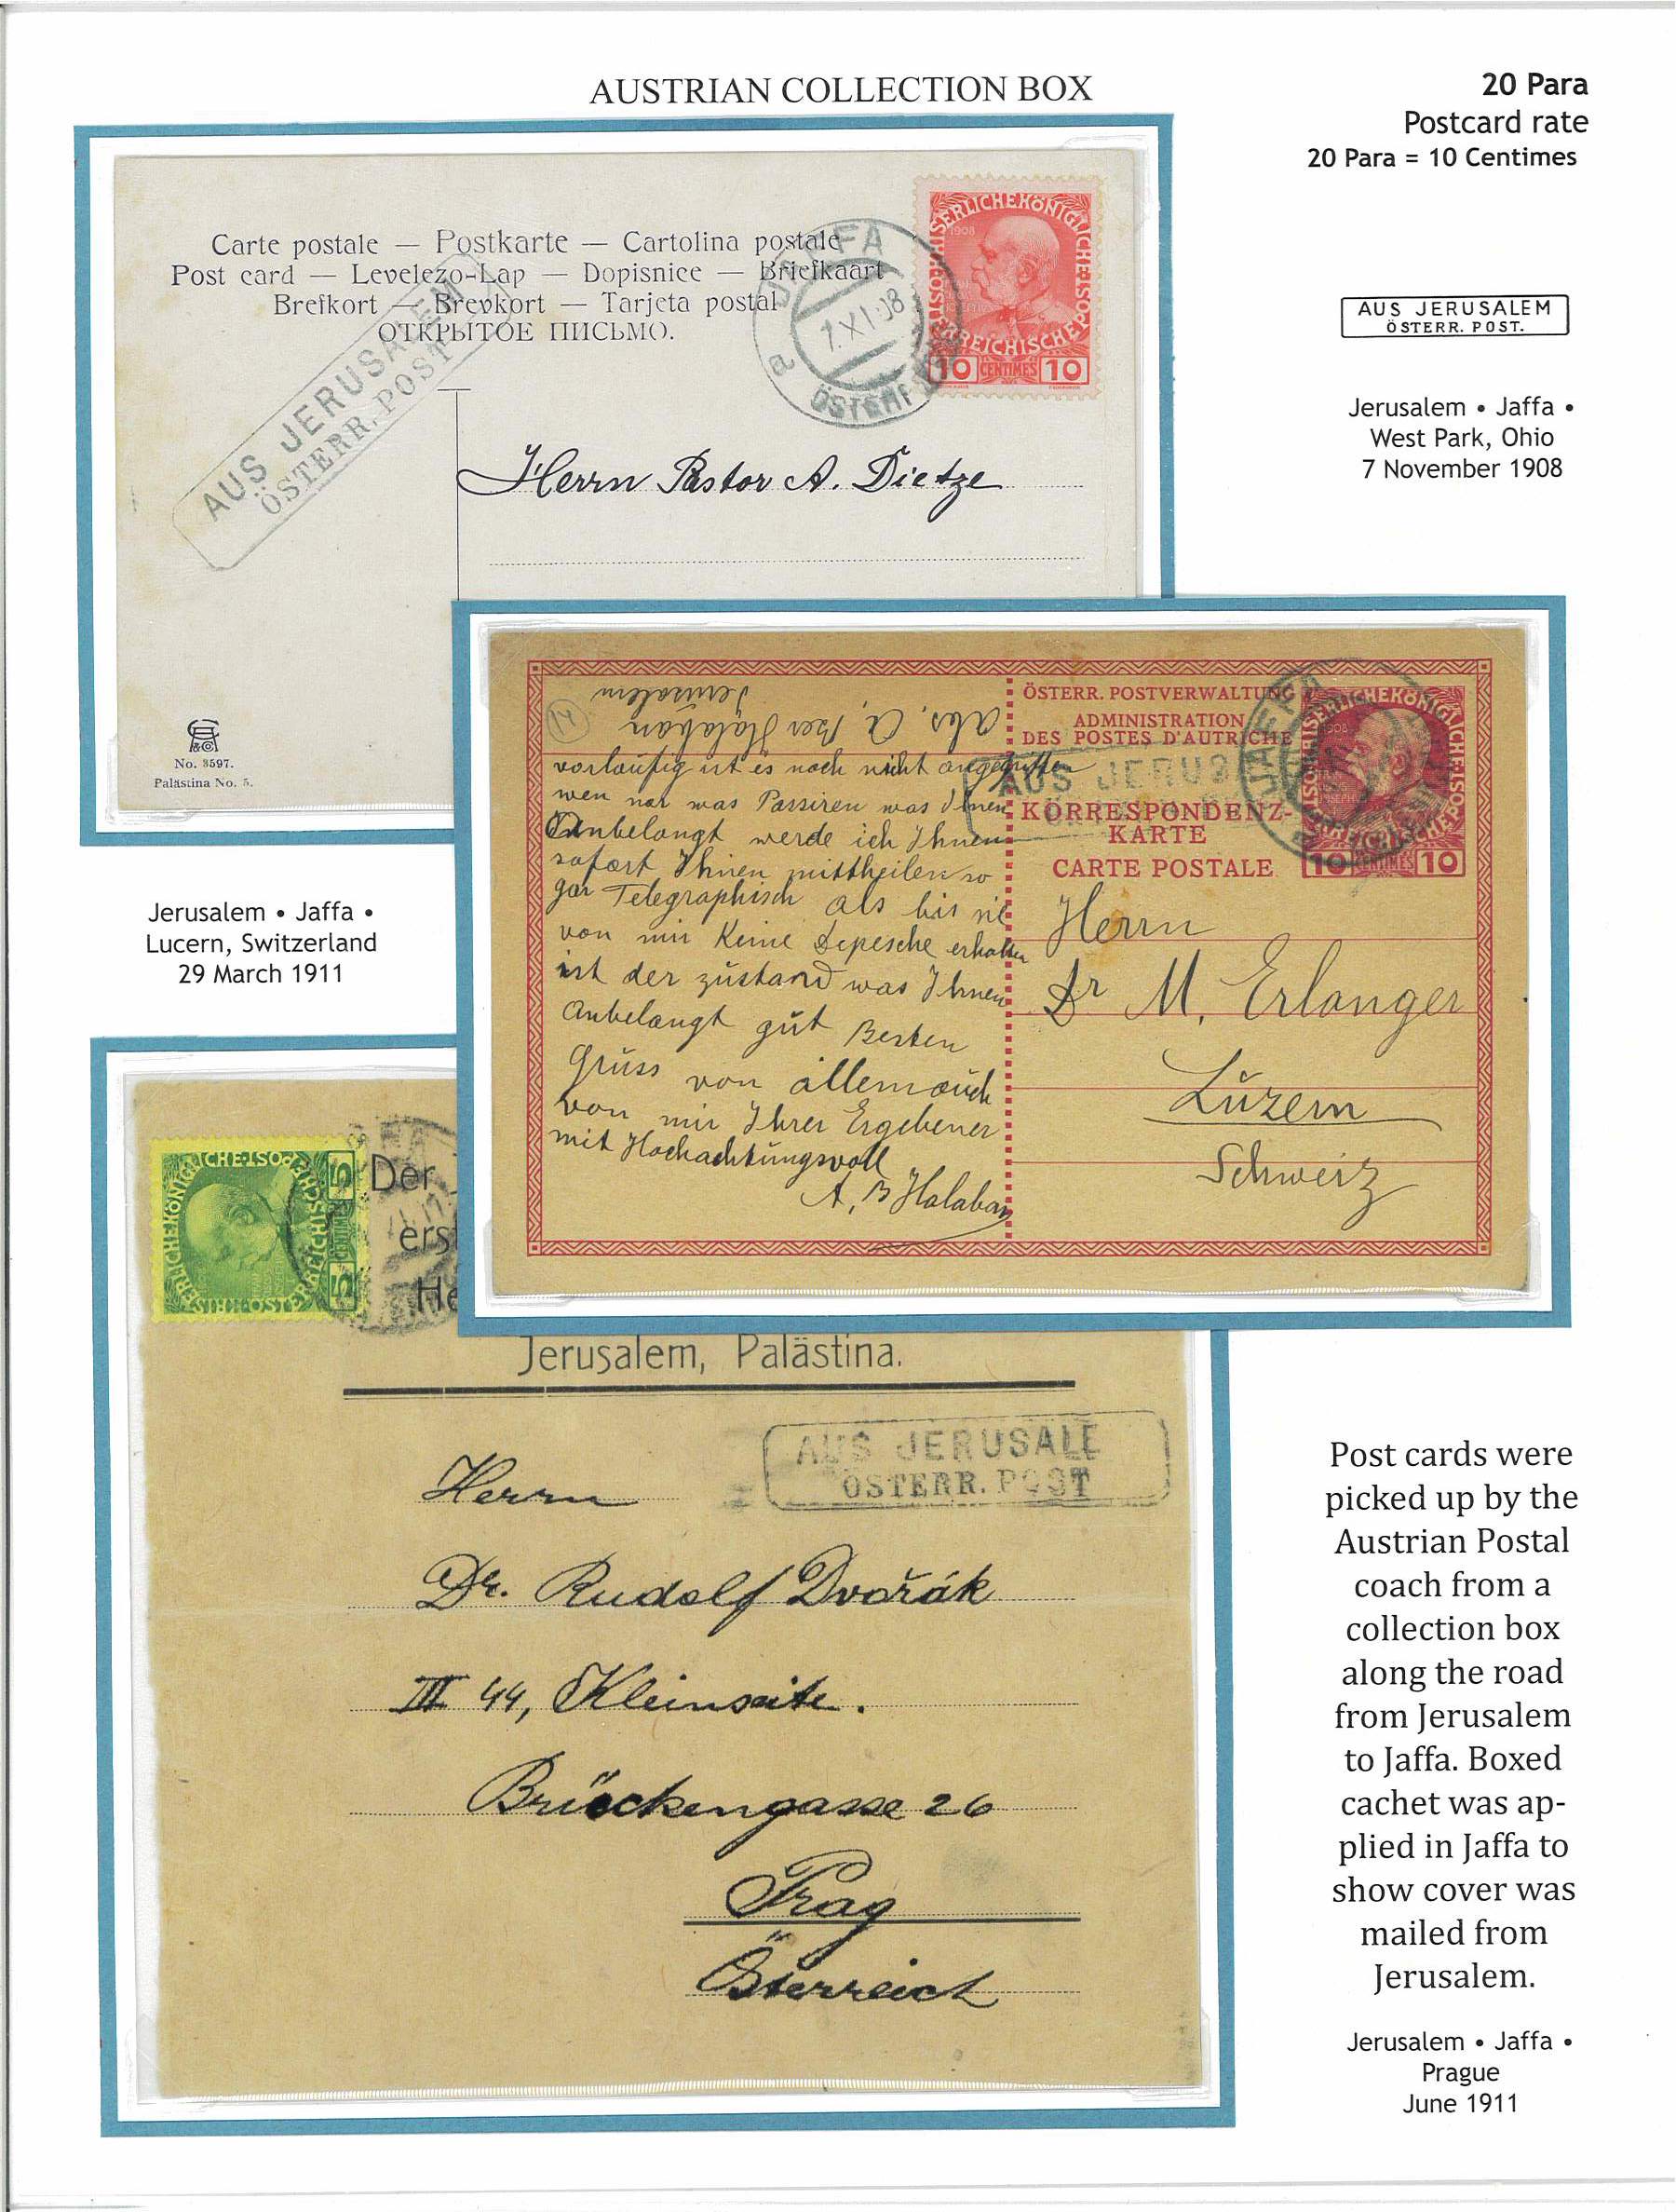 AUSTRIAN COLLECTION BOX
20 Para
Postcard rate
20 Para = 10 Centimes
AUS JERUSALEM
ÖSTERR. POST.
Jerusalem • Jaffa •
West Park, Ohio
7 November 1908
Carte postale — Postkarte — Cartolina postale
Post card — Levelezo-Lap — Dopisnice — Briefkaart
Brefkort — Brevkort — Tarjeta postal
ОТКРЫТОЕ ПИСЬМО.
AUS JERUSALEM
ÖSTERR. POST
JAFFA
7 XI 08
a
1908
10 CENTIMES 10
Herrn Pastor A. Dietze
No. 8597.
Palästina No. 5.
Jerusalem • Jaffa •
Lucern, Switzerland
29 March 1911
14
Abs. A. Ben Halaban
Jerusalem
vorlaufig ist es noch nicht angegriffen
wen nor was Passiren was Ihnen
Anbelangt werde ich Ihnen
sofort Ihnen mittheilen so
gar Telegraphisch als bis sie
von mir Keine Depesche erhalten
ist der zustand was Ihnen
Anbelangt gut Besten
Gruss von allem auch
von mir Ihrer Ergebener
mit Hochachtungsvoll
A, B Halaban
ÖSTERR. POSTVERWALTUNG
ADMINISTRATION
DES POSTES D'AUTRICHE
AUS JERUS
KORRESPONDENZ-
KARTE
CARTE POSTALE
1908
10 CENTIMES 10
Herrn
Dr M. Erlanger
Luzern
Schweiz
5 CENTIMES 5
Der
ers
He
Jerusalem, Palästina.
AUS JERUSALE
ÖSTERR. POST
Herrn
Dr. Rudolf Dvořák
III 44, Kleinseite.
Brückengasse 26
Prag
Österreich
Post cards were
picked up by the
Austrian Postal
coach from a
collection box
along the road
from Jerusalem
to Jaffa. Boxed
cachet was ap-
plied in Jaffa to
show cover was
mailed from
Jerusalem.
Jerusalem • Jaffa •
Prague
June 1911